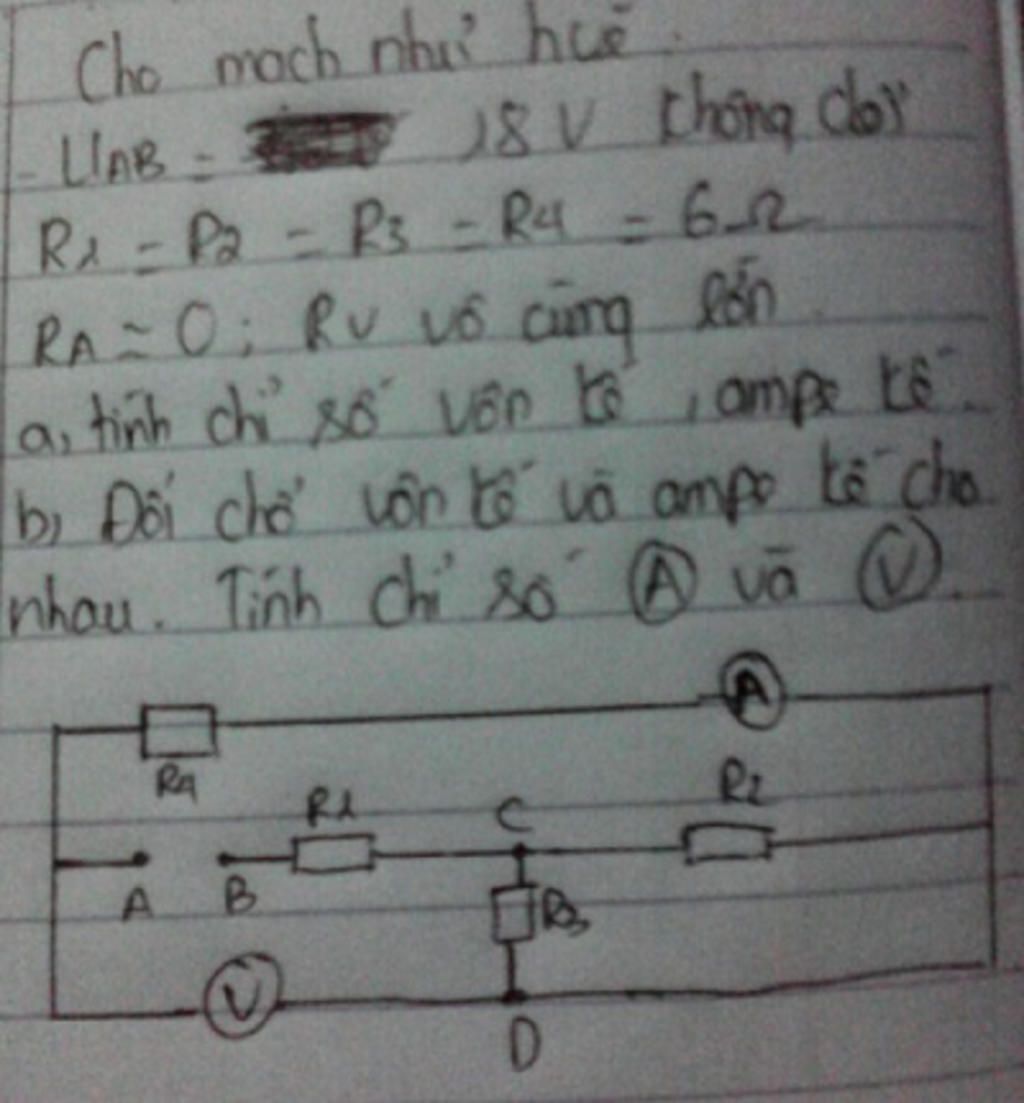 Cho mạch như hvẽ.
- UAB = 18 V không đổi
R1 = R2 = R3 = R4 = 6Ω
RA ≈ 0; RV vô cùng lớn.
a, tính chỉ số vôn kế, ampe kế.
b, Đổi chỗ vôn kế và ampe kế cho
nhau. Tính chỉ số (A) và (V).
A
R4
R1
C
R2
A
B
R3
V
D